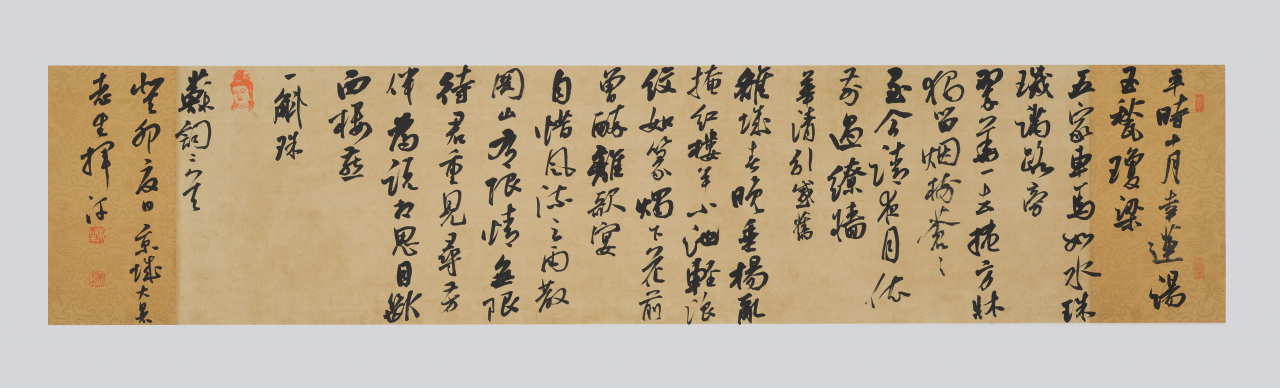 平時十月幸蓮湯
玉甃瓊梁
五家車馬如水珠
璣滿路旁
翠華一去掩方牀
獨留烟樹蒼〻
至今清夜月依
前過繚牆
華清引感舊
雒城春晚垂楊亂
掩紅樓半小池輕浪
紋如篆燭下花前
曾醉離歌宴
自惜風流雲雨散
關山有限情無限
待君重見尋芳
伴爲說相思目斷
西樓燕
一斛珠
蘇詞二
癸卯夏日京城大暑
老生揮汗